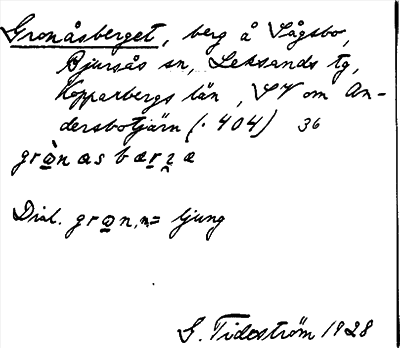 Gronåsberget, berg å Sågsbo,
Bjursås sn, Leksands tg,
Kopparbergs län, SV om An-
dersbotjärn (. 404) 36
grònasbærʒæ
Dial. gron, n = ljung
G. Tideström 1928